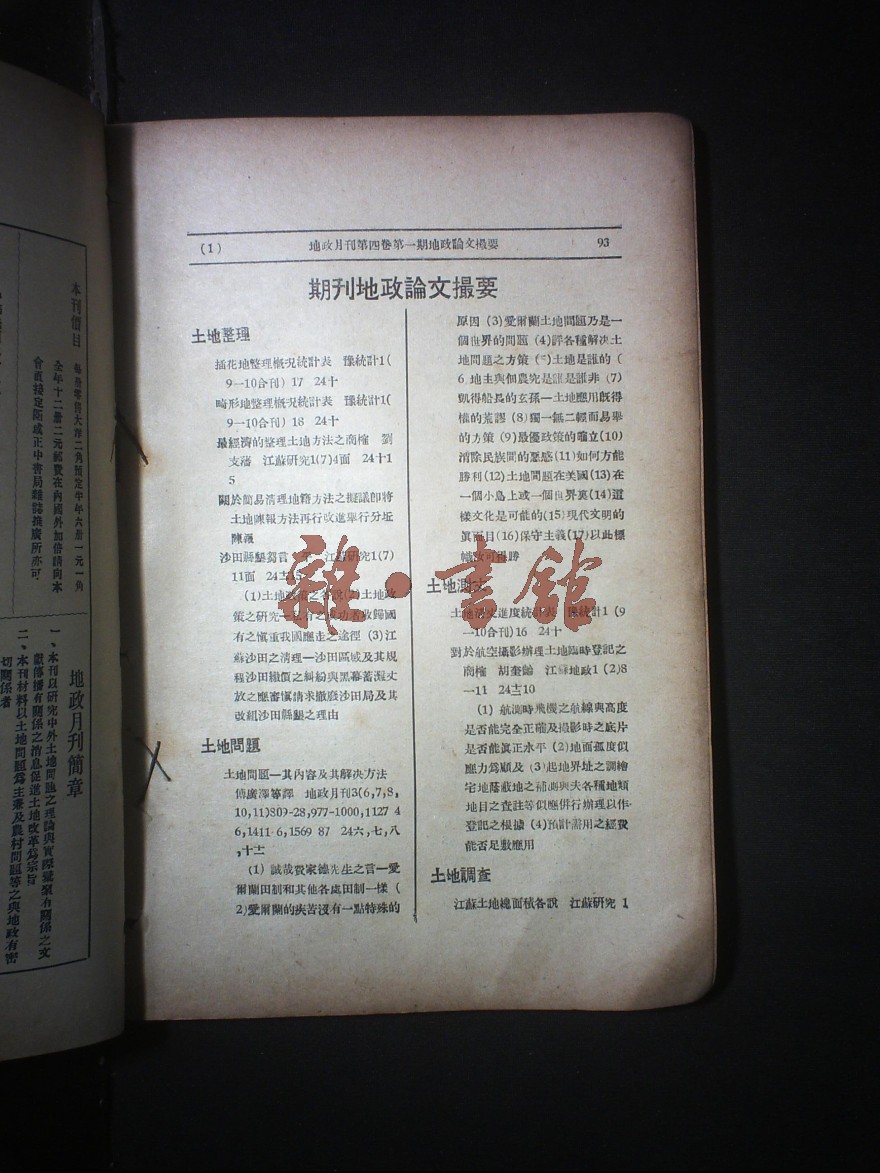 (1) 地政月刊第四卷第一期地政論文撮要 93
期刊地政論文撮要
土地整理
插花地整理槪況統計表 豫統計1(
9—10合刊) 17 24十
畸形地整理槪況統計表 豫統計1(
9—10合刊) 18 24十
最經濟的整理土地方法之商榷 劉
支藩 江蘇研究1(7)4面 24十1
5
關於簡易淸理地籍方法之擬議卽將
土地陳報方法再行改進舉行分坵
陳報
沙田縣墾芻言 江蘇研究1(7)
11面 24十15
(1)土地政策之各說(2)土地政
策之研究—私有之成功者收歸國
有之愼重我國應走之途徑 (3)江
蘇沙田之淸理—沙田區域及其規
程沙田繳價之糾紛與黑幕蓄泥丈
放之應審愼請求撤廢沙田局及其
改組沙田縣墾之理由
土地問題
土地問題—其內容及其解决方法
傅廣澤等譯 地政月刊3(6,7,8,
10,11)809-28,977-1000,1127 4
6,1411 6,1569 87 24六,七,八
,十十一
(1) 誠哉費家德先生之言—愛
爾蘭田制和其他各處田制一樣 (
2)愛爾蘭的疾苦沒有一點特殊的
原因 (3)愛爾蘭土地問題乃是一
個世界的問題 (4)評各種解决土
地問題之方策 (5)土地是誰的 (
6 地主與佃農究是誰是誰非 (7)
凱得船長的玄孫—土地應用旣得
權的荒謬 (8)獨一無二輕而易舉
的方策 (9)最優政策的確立(10)
消除民族間的惡感(11)如何方能
勝利(12)土地問題在美國(13)在
一個小島上或一個世界裏(14)這
樣文化是可能的(15)現代文明的
眞面目(16)保守主義(17)以此標
幟致可得勝
土地測丈
土地淸丈進度統計表 豫統計1 (9
—10合刊)16 24十
對於航空攝影辦理土地臨時登記之
商榷 胡奎齡 江蘇地政1(2)8
—11 24十10
(1) 航測時飛機之航線與高度
是否能完全正確及攝影時之底片
是否能眞正水平 (2)地面孤度似
應力爲顧及 (3)起地界址之調繪
宅地蔭蔽地之補測與夫各種地類
地目之査註等似應併行辦理以作
登記之根據 (4)預計需用之經費
能否足敷應用
土地調査
江蘇土地總面積各說 江蘇研究 1
本刊價目
每册零售大洋二角預定半年六册一元一角
全年十二册二元郵費在內國外加倍請向本
會直接定閱或正中書局雜誌推廣所亦可
地政月刊簡章
一、本刊以研究中外土地問題之理論與實際蒐聚有關係之文
獻傳播有關係之消息促進土地改革爲宗旨
二、本刊材料以土地問題爲主兼及農村問題等之與地政有密
切關係者
雜·書館